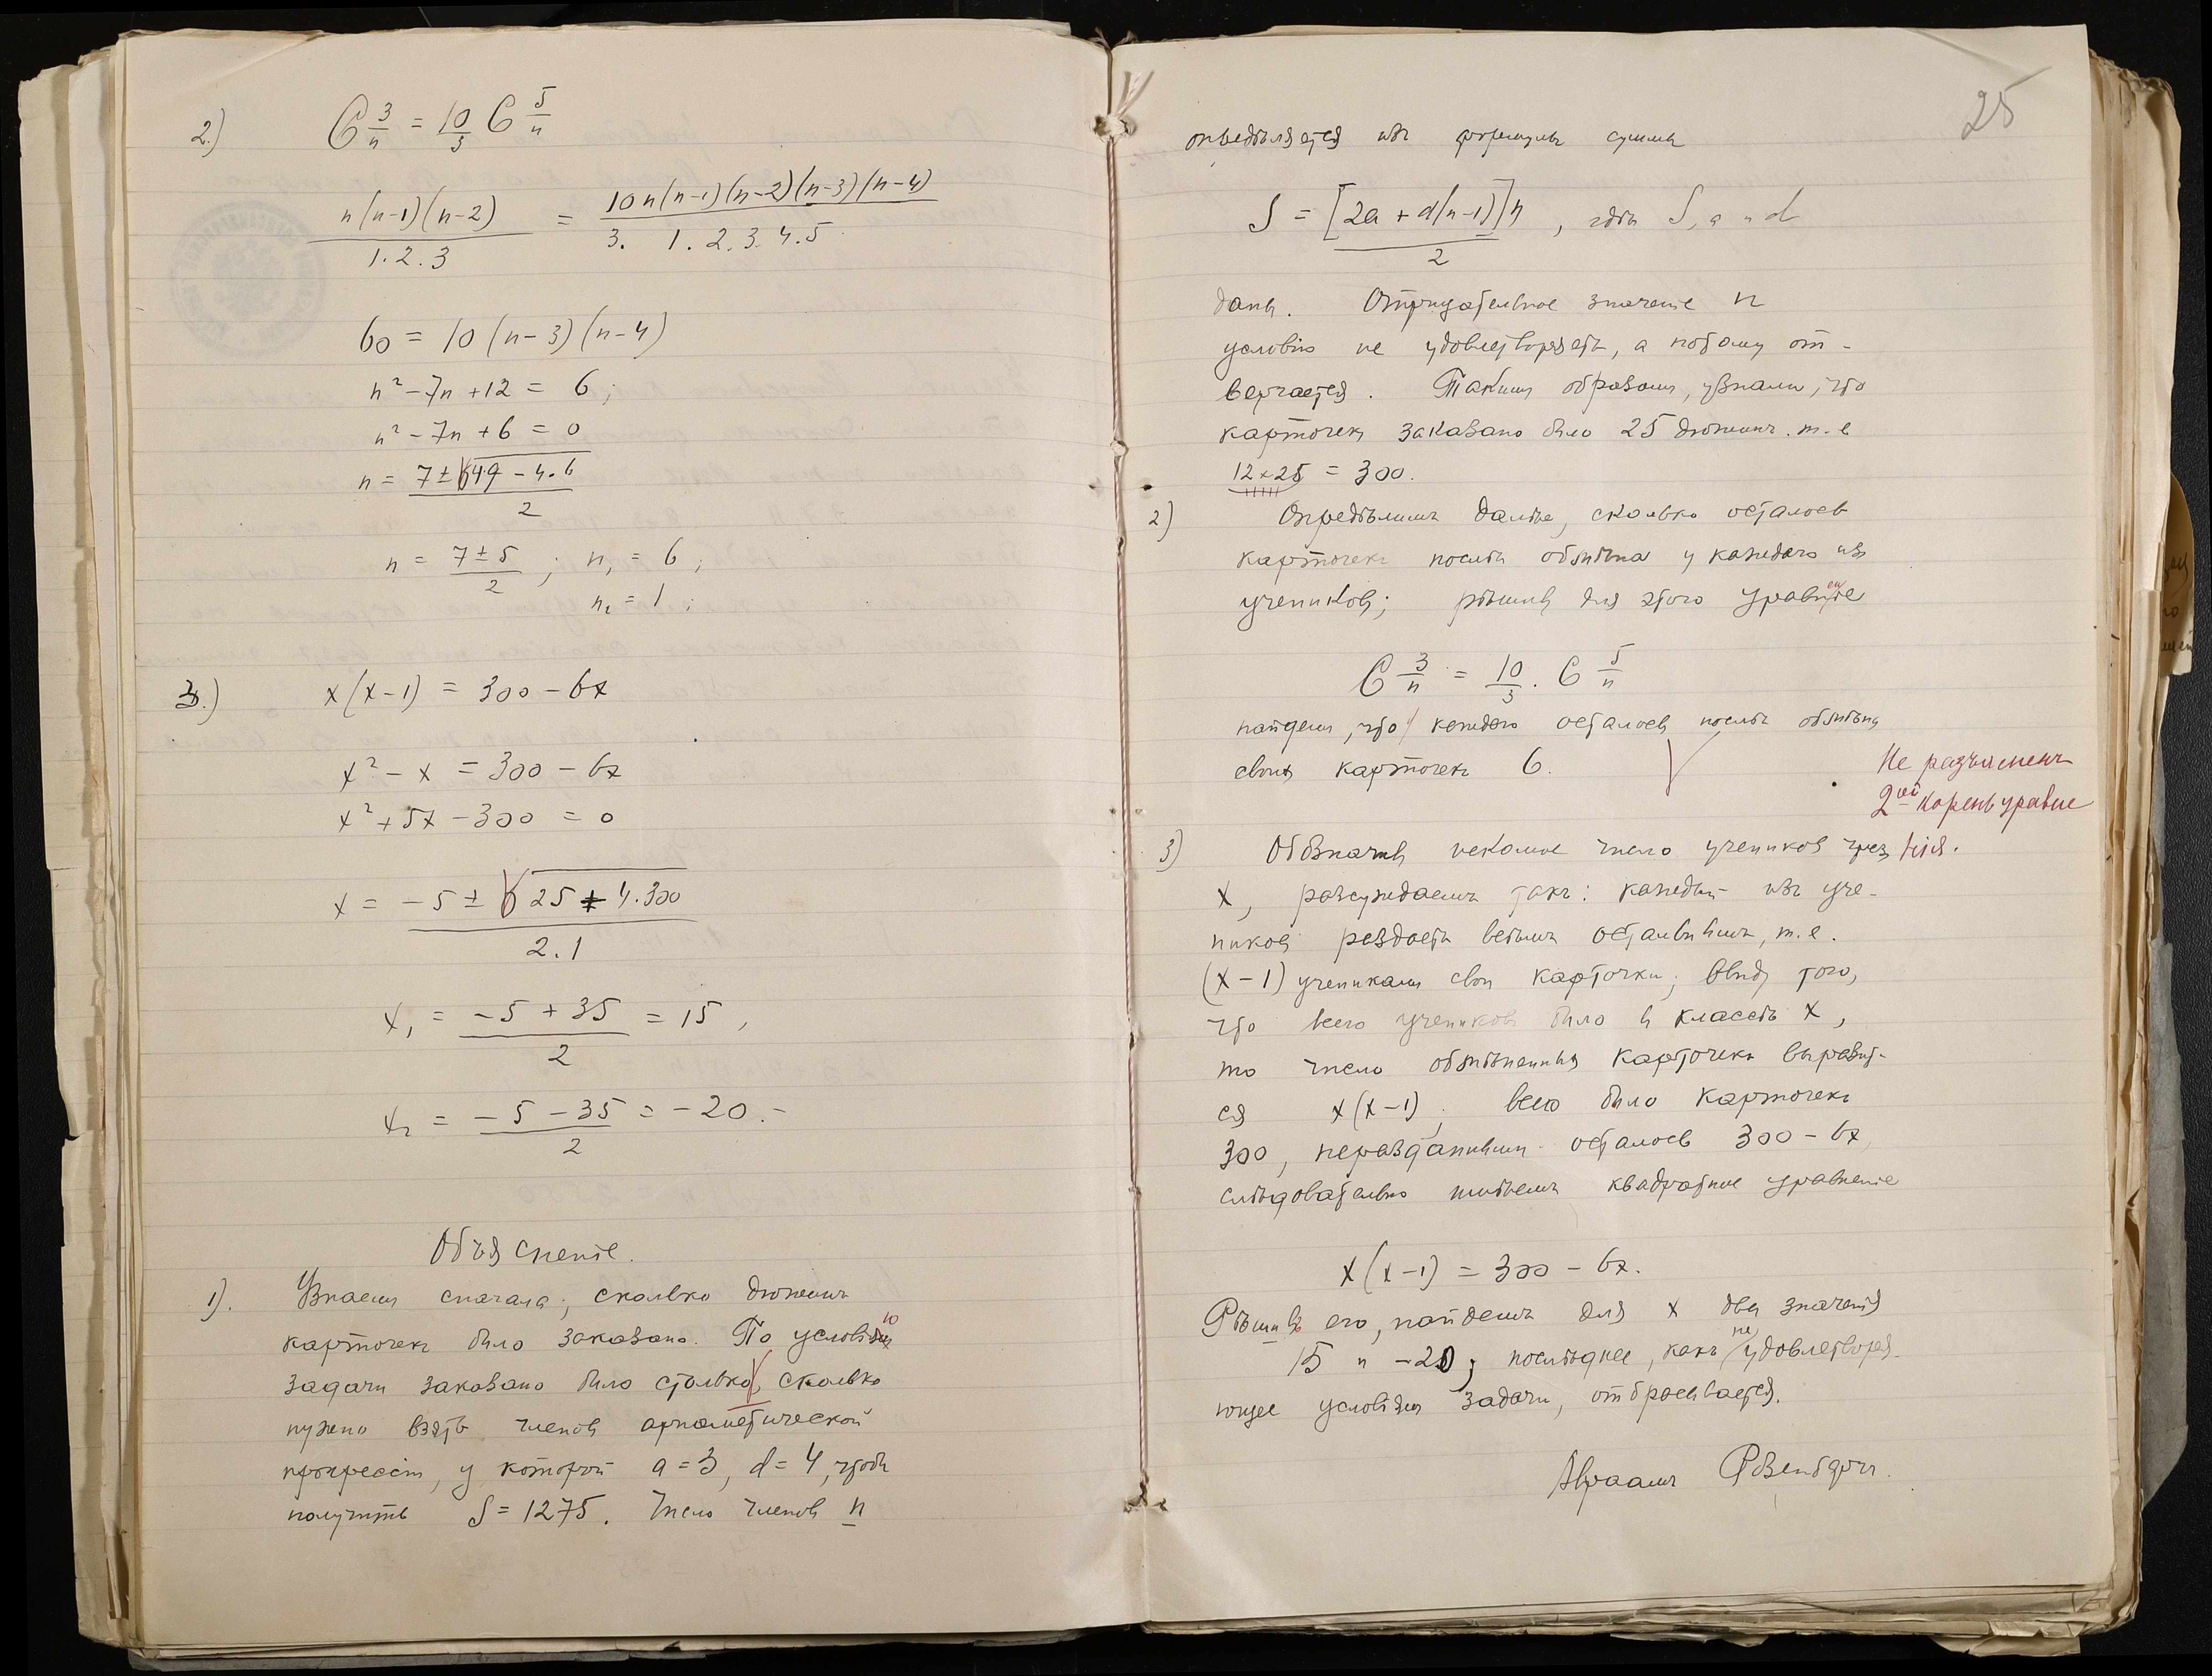 2.) C 3/n = 10/3 C 5/n
n(n-1)(n-2) / 1.2.3 = 10n(n-1)(n-2)(n-3)(n-4) / 3. 1.2.3.4.5
60 = 10(n-3)(n-4)
n² - 7n + 12 = 6;
n² - 7n + 6 = 0
n = 7 ± √49 - 4.6 / 2
n = 7 ± 5 / 2; n₁ = 6;
n₂ = 1;
3.) x(x-1) = 300 - 6x
x² - x = 300 - 6x
x² + 5x - 300 = 0
x = -5 ± √25 + 4.300 / 2.1
x₁ = -5 + 35 / 2 = 15,
x₂ = -5 - 35 / 2 = -20.-
Объясненіе.
1). Узнаемъ сначала, сколько дюжинъ
карточекъ было заказано. По условію
задачи заказано было столько, сколько
нужно взять членовъ ариѳметической
прогрессіи, у которой a = 3, d = 4, чтобы
получить S = 1275. Число членовъ n
25
опредѣляется изъ формулы суммы
S = [2a + d(n-1)]n / 2, гдѣ S, a и d
даны. Отрицательное значеніе n
условію не удовлетворяетъ, а потому от-
вергается. Такимъ образомъ, узнали, что
карточекъ заказано было 25 дюжинъ. т.е
12×25 = 300.
2) Опредѣлимъ далѣе, сколько осталось
карточекъ послѣ обмѣна у каждаго изъ
учениковъ; рѣшивъ для этого уравненіе
C 3/n = 10/3 . C 5/n
найдемъ, что у каждаго осталось послѣ обмѣна
своихъ карточекъ 6.
Не разъясненъ
2ой корень уравне
нія.
3) Обозначивъ искомое число учениковъ чрезъ
x, разсуждаемъ такъ: каждый изъ уче-
никовъ раздастъ всѣмъ остальнымъ, т.е.
(x-1) ученикамъ свои карточки; ввиду того,
что всего учениковъ было въ классѣ x,
то число обмѣненныхъ карточекъ выразит-
ся x(x-1). Всего было карточекъ
300, нерозданными осталось 300 - 6x,
слѣдовательно имѣемъ квадратное уравненіе
x(x-1) = 300 - 6x.
Рѣшивъ его, найдемъ для x два значенія
15 и -20; послѣднее, какъ не удовлетворя-
ющее условіямъ задачи, отбрасывается.
Авраамъ